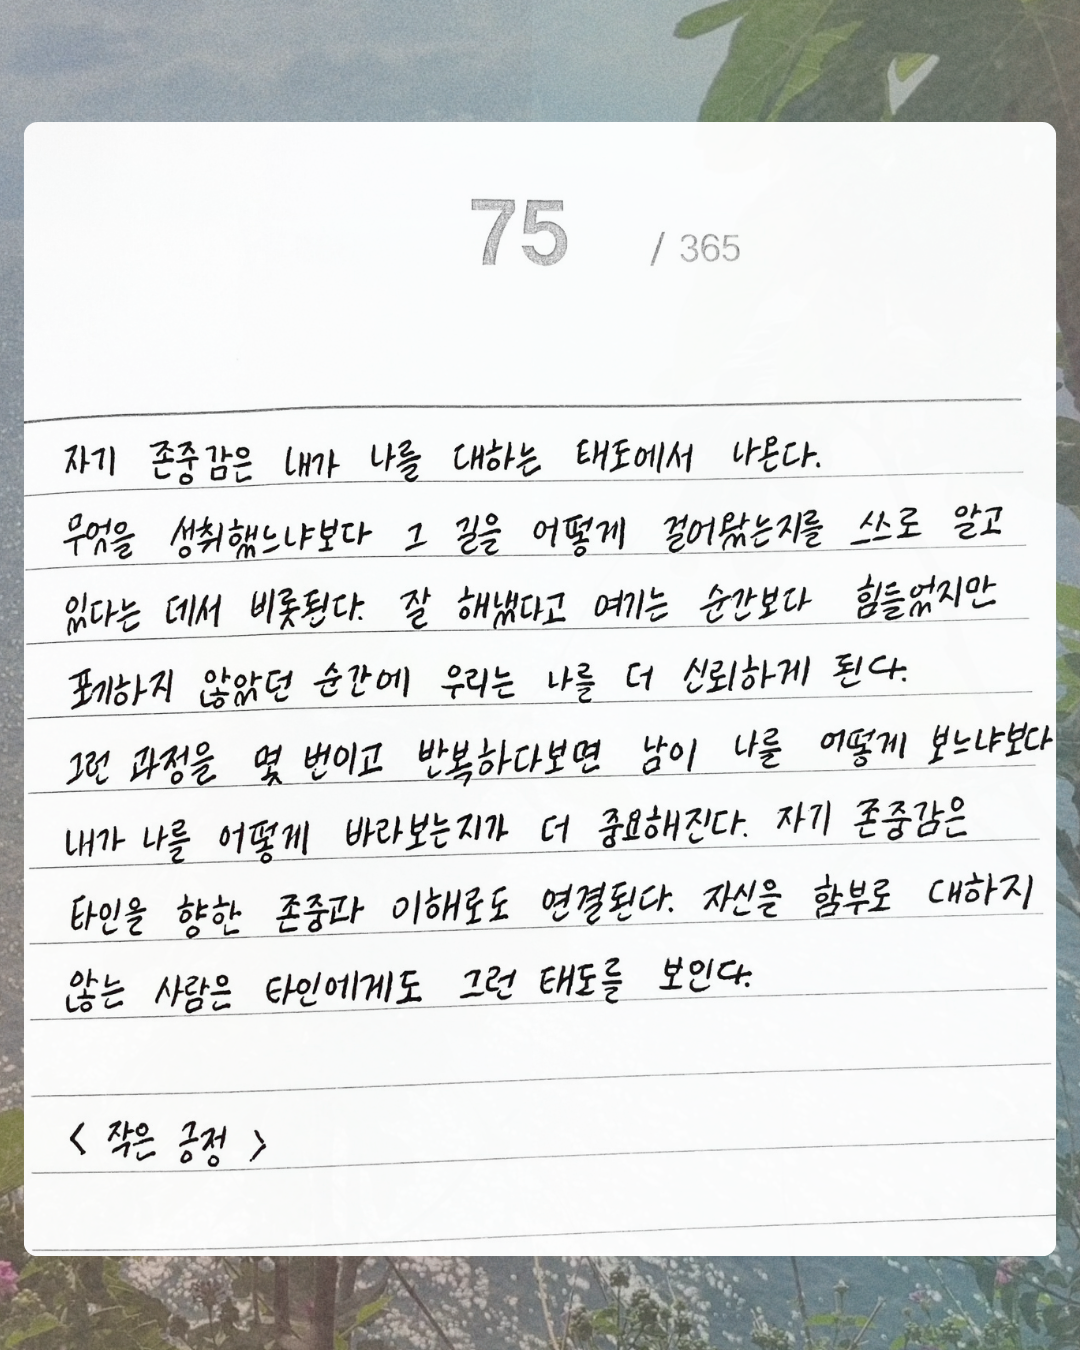 75 / 365
자기 존중감은 내가 나를 대하는 태도에서 나온다.
무엇을 성취했느냐보다 그 길을 어떻게 걸어왔는지를 스스로 알고
있다는 데서 비롯된다. 잘 해냈다고 여기는 순간보다 힘들었지만
포기하지 않았던 순간에 우리는 나를 더 신뢰하게 된다.
그런 과정을 몇 번이고 반복하다보면 남이 나를 어떻게 보느냐보다
내가 나를 어떻게 바라보는지가 더 중요해진다. 자기 존중감은
타인을 향한 존중과 이해로도 연결된다. 자신을 함부로 대하지
않는 사람은 타인에게도 그런 태도를 보인다.
< 작은 긍정 >